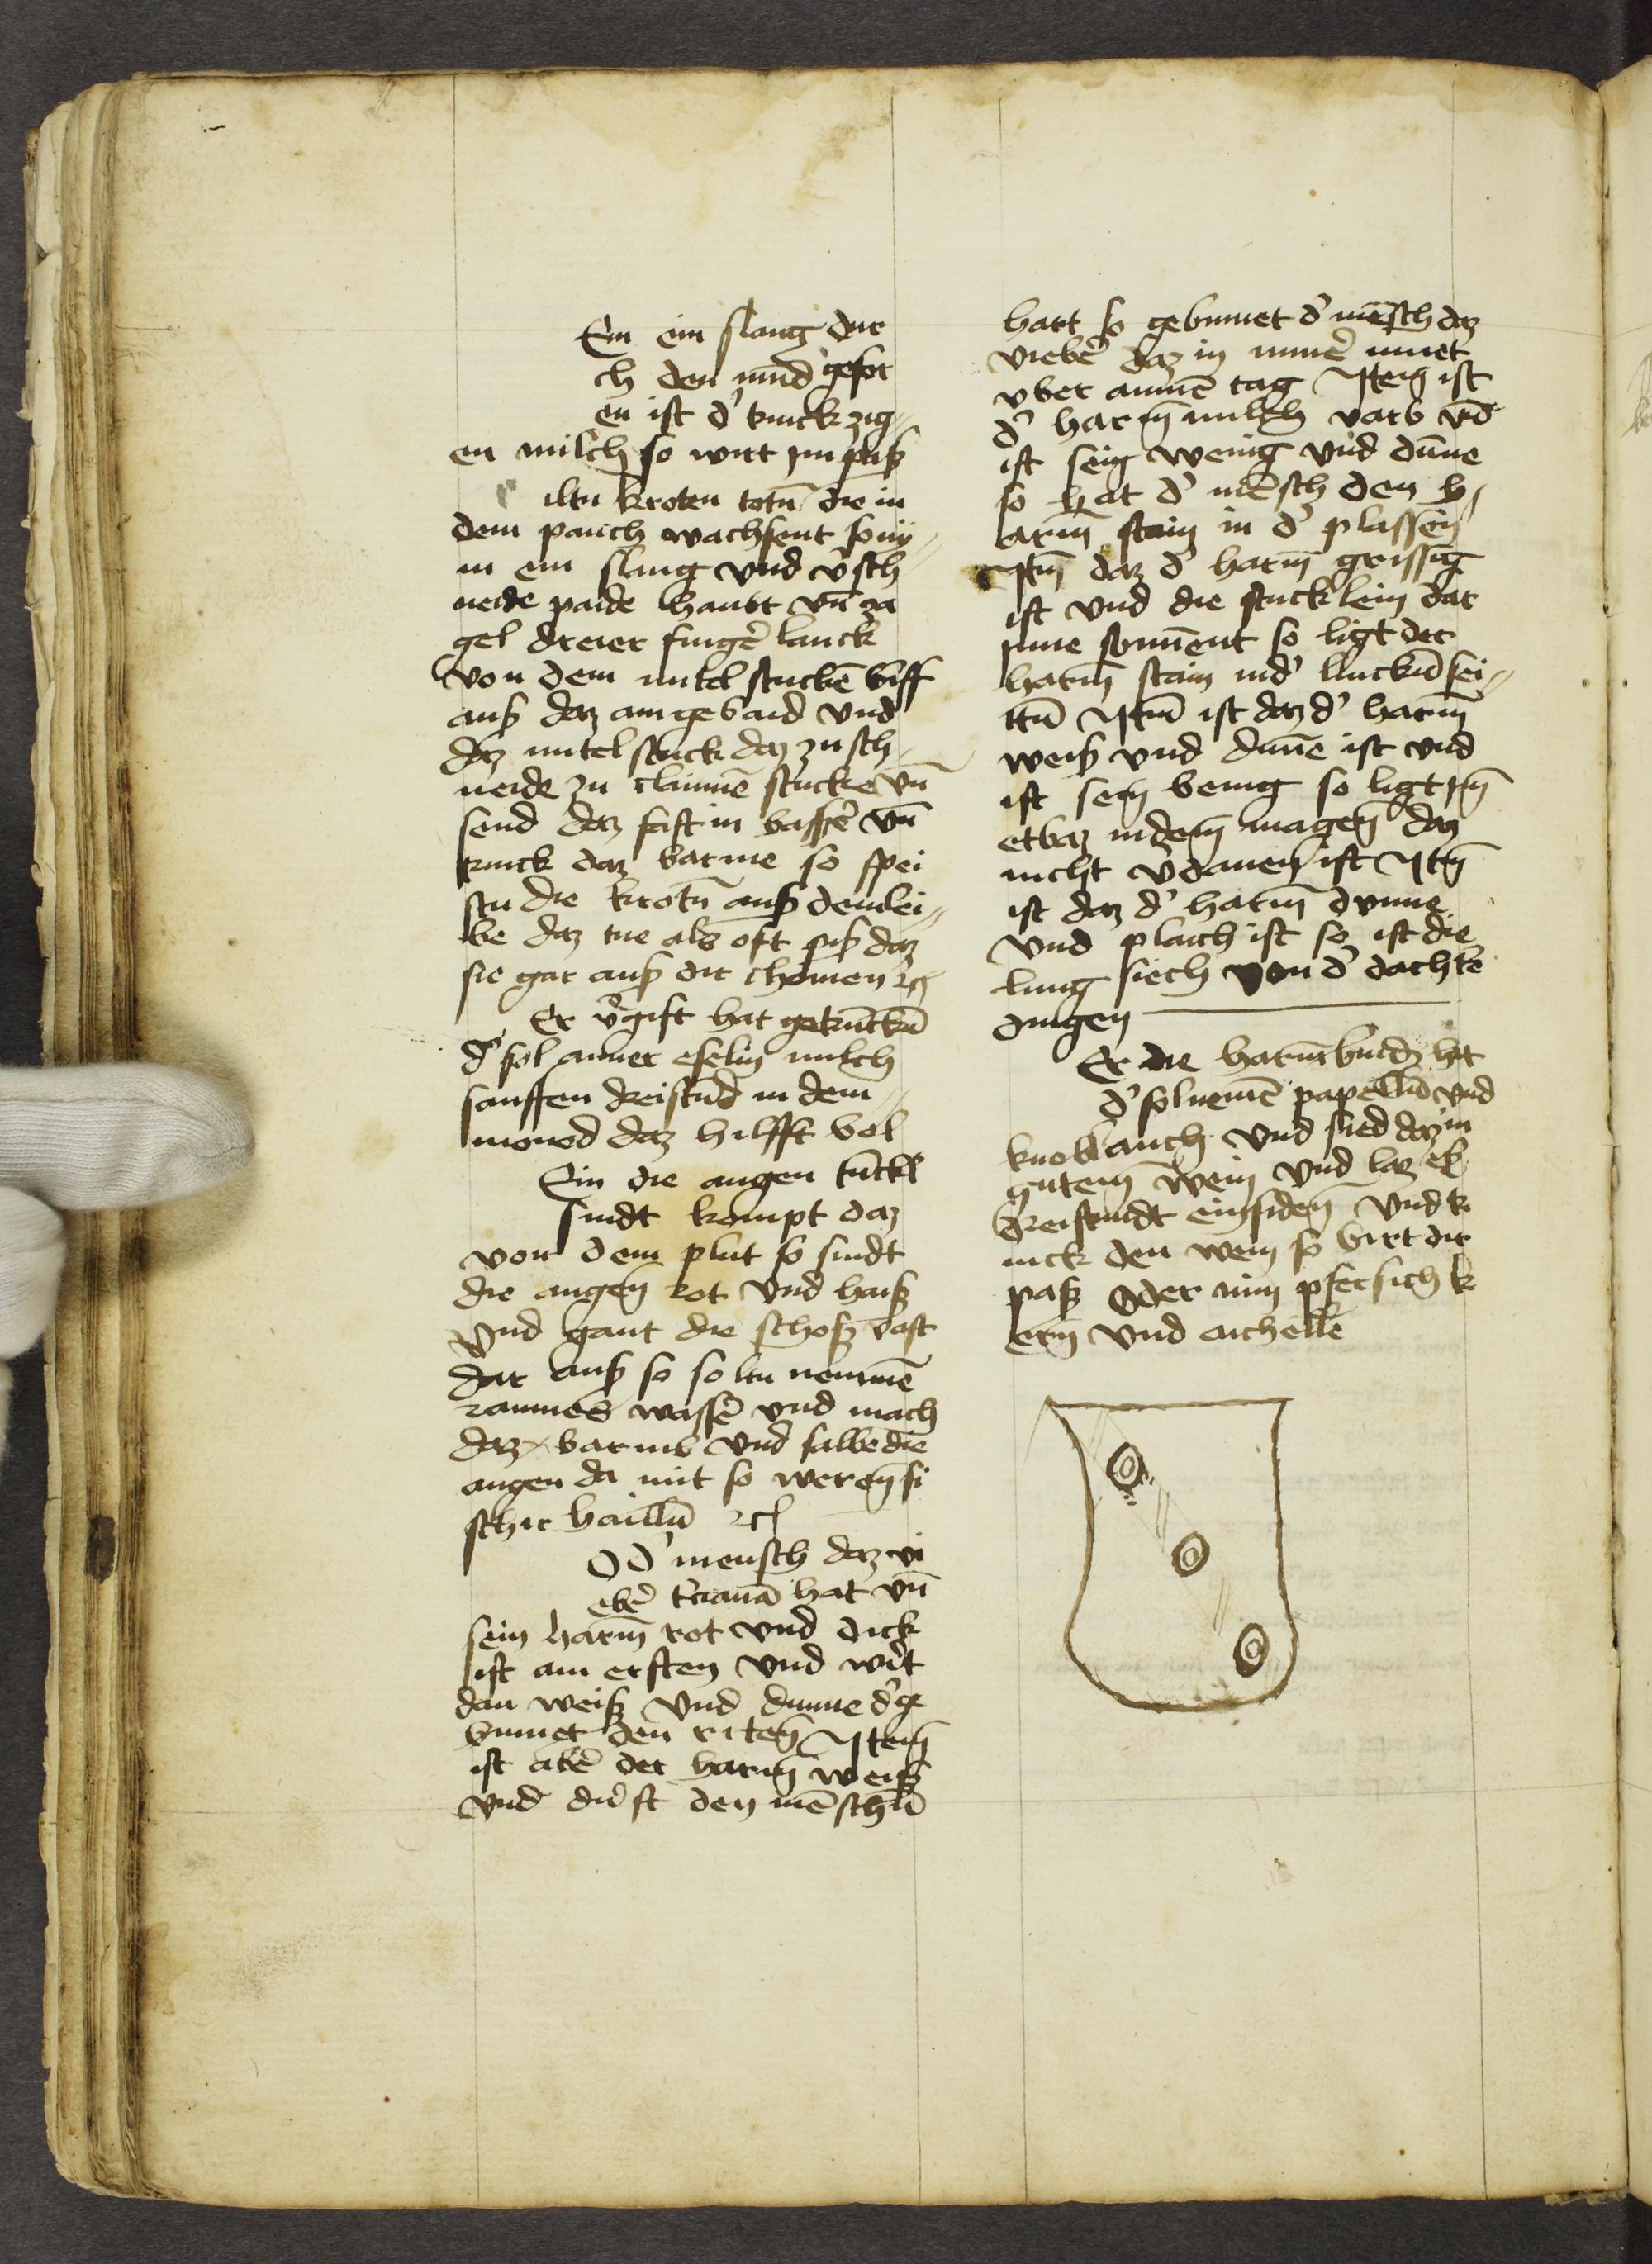 Em ein slang dur
ch den mūd gefar
en ist d' trinck zig
en milch so wirt im paß
iltu kroten totn̄ die in
dem pauch wachsent so ny
m ein slang vnd v̓sch
neide paide haubt vn̄ za
gel dreier finger̓ lanck
von dem mitel stucke biff
auß daz ingebaid vnd
daz mitel stuck daz zu sch
neide zu clainnē stucke vn̄
send daz fast in basser̓ vn̄
trinck daz barme so spei
stu die krotn̄ auß dem lei
be daz tue als oft piß daz
sie gar auß dir chomen
Er v̓gift hat getrūckn̄
d' sol ainer eselin milch
sauffen dreistūd in dem
moned daz hilfft bol
Em die augen tūckl
sindt kompt daz
von dem plut so sindt
die augen̄ rot vnd haiß
vnd gant die schoß vast
dar auß so soltu nemmē
raumes wasser̓ vnd mach
daz barmb vnd salbe die
augen da mit so weren̄ si
schir hailln̄
O d' mensch daz vi
eber̓ hat vn̄
sein harm̄ rot vnd dick
ist am ersten vnd wirt
dan weiß vnd dunne d' ge
binnet den riten̄ ytem̄
ist aber̓ der harm̄ weiß
vnd dürst den mēschn̄
hart so gebinnet d' mēsch daz
vieber̓ daz in
vber ainnē tag ytem̄ ist
d' harm̄ milch varb vn̄d
ist sein wenig vnd dūne
so hat d' mēsch den h
arm̄ stain in d' plassen
ytm̄ daz d' harm̄ grissig
ist vnd die stucklein dar
inne so ligt der
harm̄ stain in d' linckn̄ sei
ttn̄ ytm̄ ist daz d' harm̄
weiß vnd dūnne ist vnd
ist sein benig so ligt ym̄
etbaz in dem̄ magen̄ daz
nicht v̓dauen̄ ist ytm̄
ist daz d' harm̄ dunne
vnd plaich ist so ist die
lung siech von d' dachtē
dingen
Er die harmbind hat
d' sol nemē papelln̄ vnd
knoblauch vnd sied daz in
gutem̄ wein vnd laz eß
dreistundt einsiden̄ vnd tr
inck den wein so birt dir
paß oder nim pfersich k
ern̄ vnd aichelle